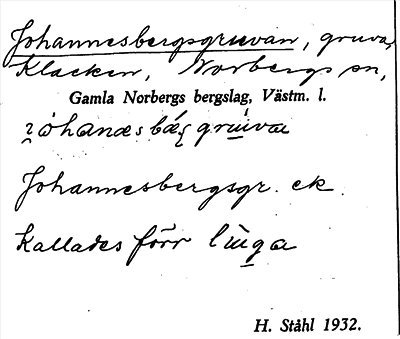 Johannesbergsgruvan, gruva,
Klacken, Norbergs sn,
Gamla Norbergs bergslag, Västm. l.
Johannesbergsgr. ek.
Kallades förr
H. Ståhl 1932.